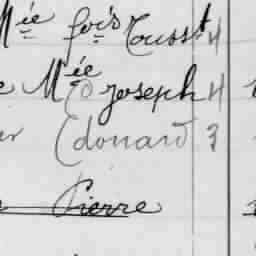 Mie fois Tousst 4
Mie Joseph 4
Edouard 3
Pierre